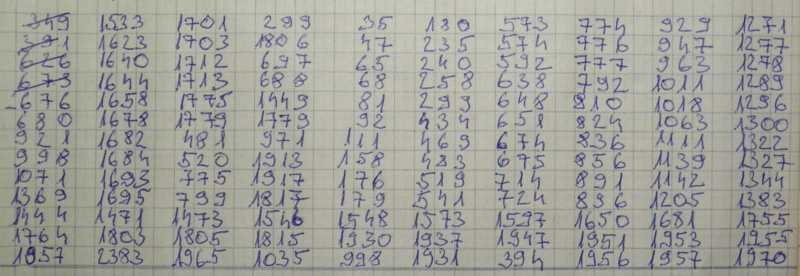 349 1533 1701 299 35 180 573 774 929 1271
391 1623 1703 1806 47 235 574 776 947 1277
626 1640 1712 697 65 240 592 777 963 1278
673 1644 1713 688 68 258 638 792 1011 1289
676 1658 1775 1449 81 299 648 810 1018 1296
680 1678 1779 1779 92 434 651 824 1063 1300
921 1682 481 971 111 469 674 836 1111 1322
998 1684 520 1913 158 483 675 856 1139 1327
1071 1693 775 1917 176 519 714 891 1142 1344
1369 1695 799 1817 179 541 724 896 1205 1383
1444 1471 1473 1546 1548 1573 1597 1650 1681 1755
1764 1803 1805 1815 1930 1937 1947 1951 1953 1955
1957 2383 1965 1035 998 1931 394 1956 1957 1970